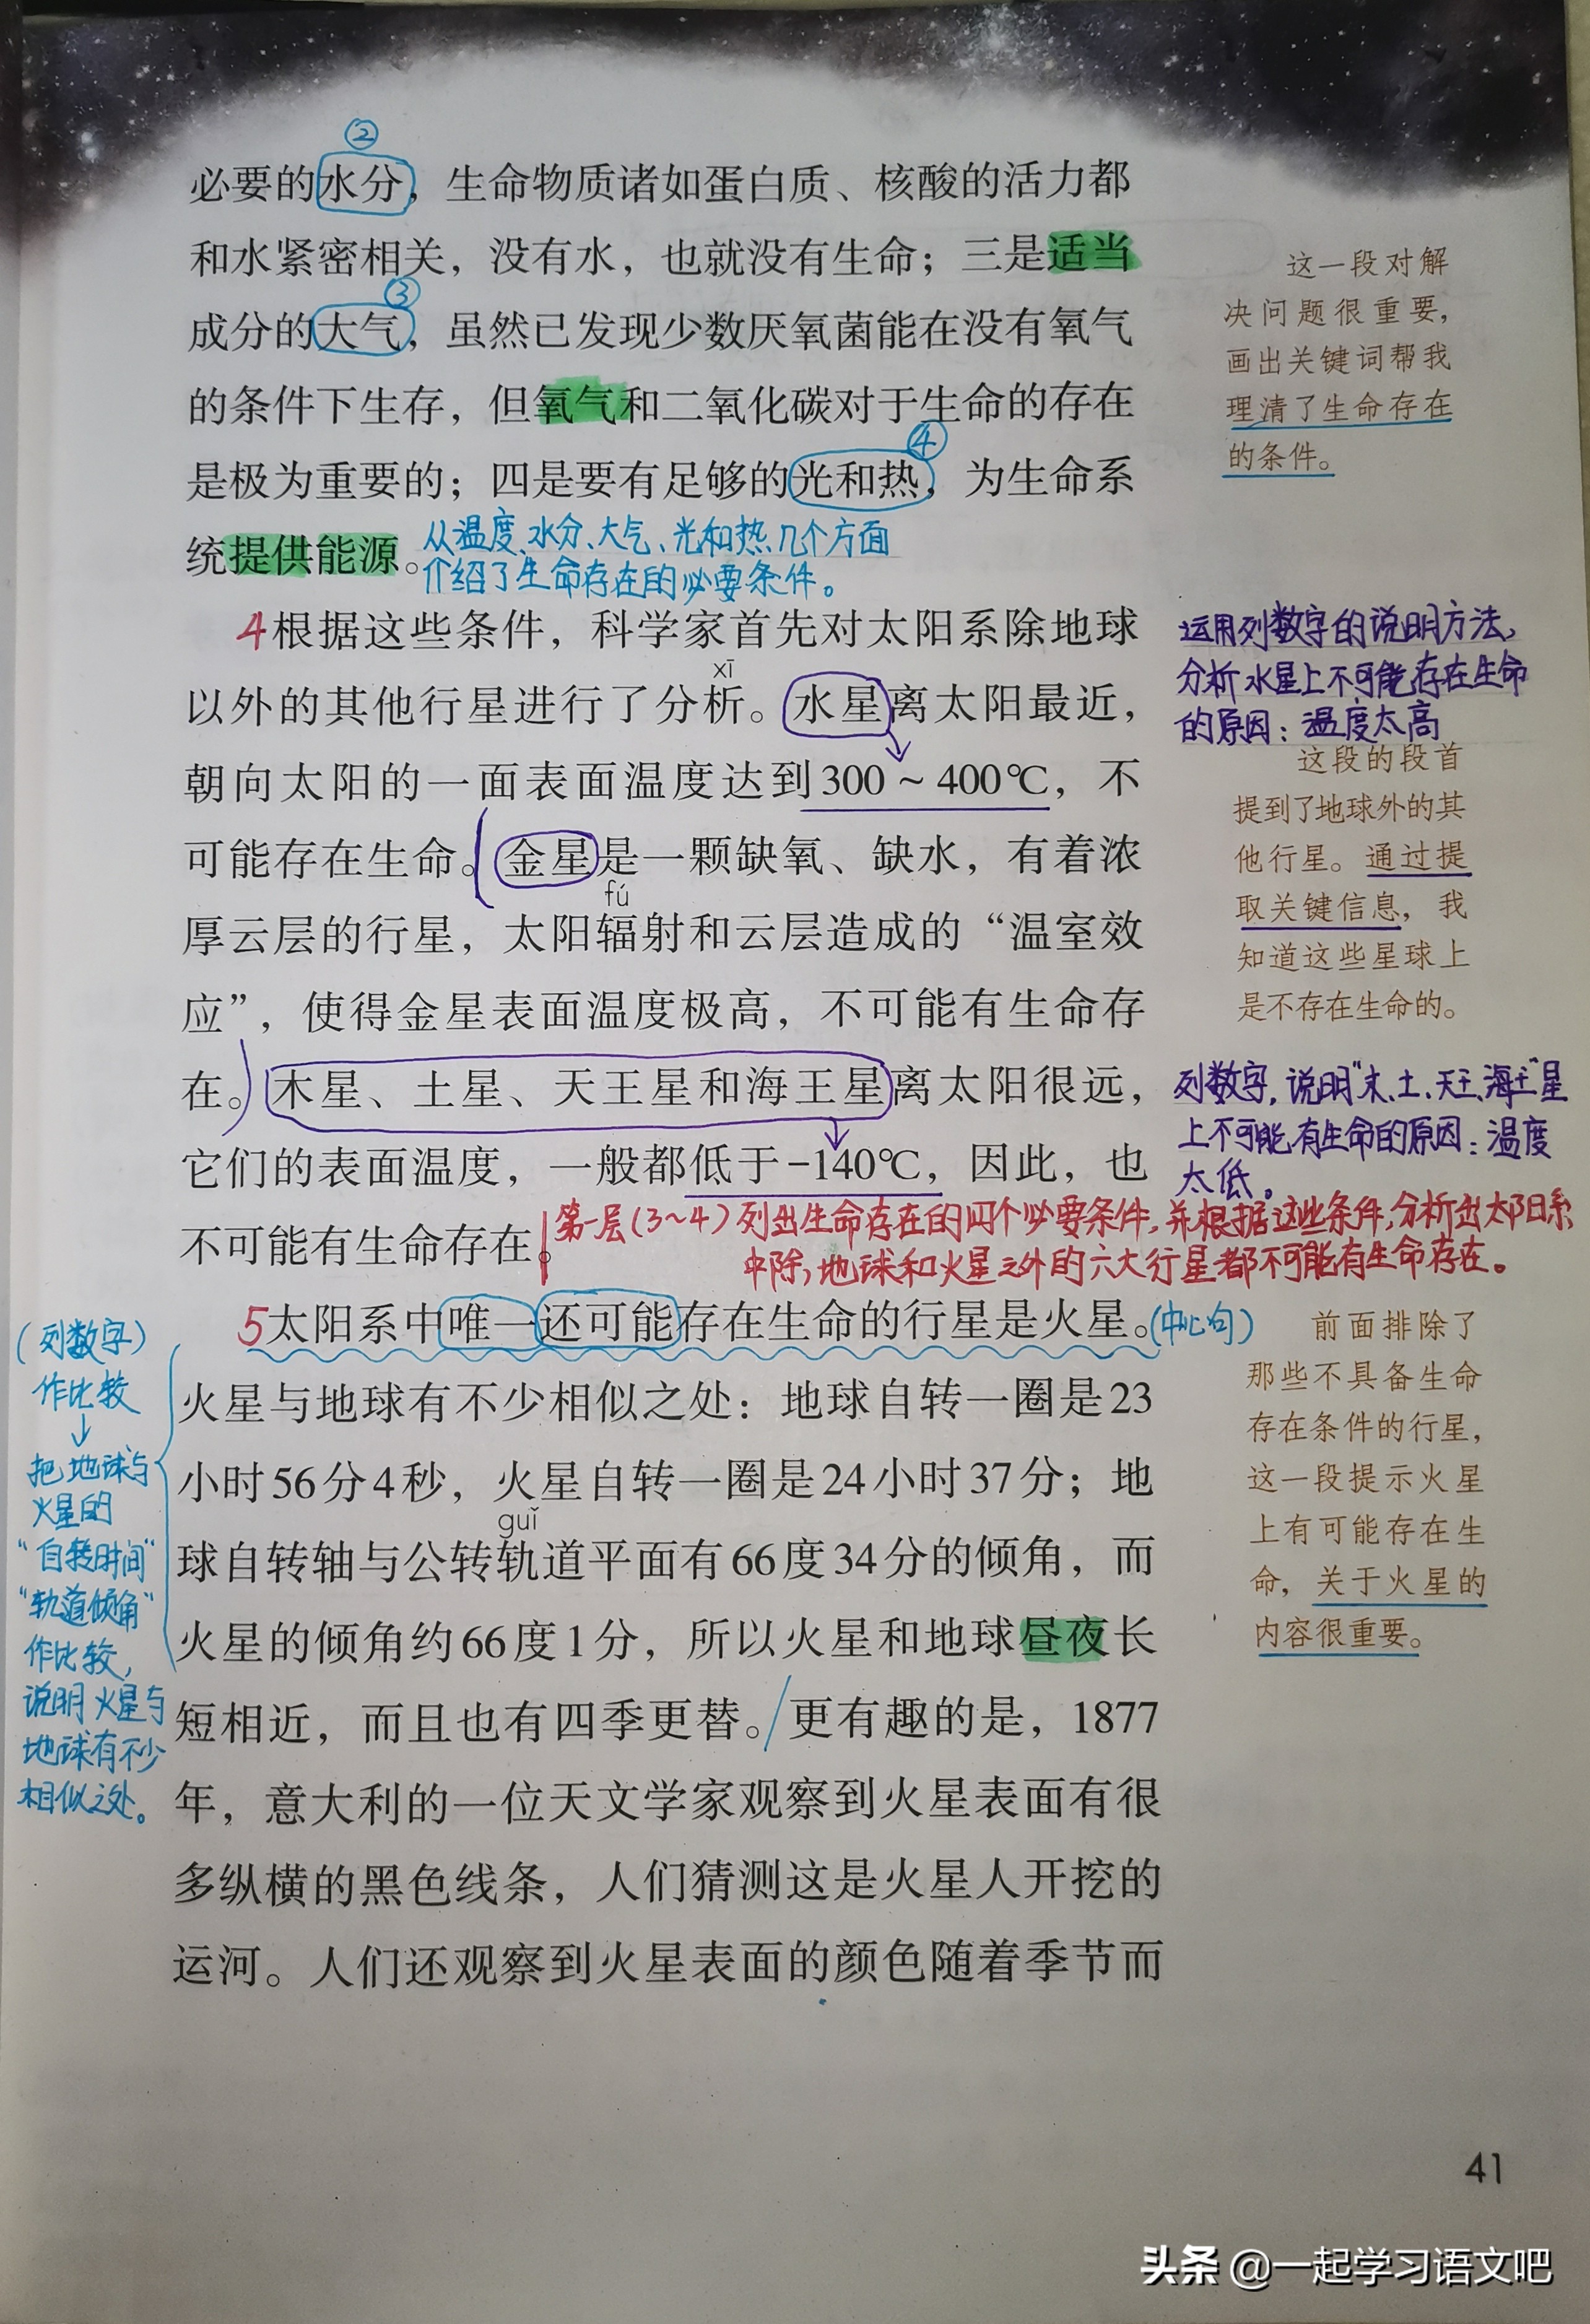 ②
必要的水分，生命物质诸如蛋白质、核酸的活力都
和水紧密相关，没有水，也就没有生命；三是适当
③
成分的大气，虽然已发现少数厌氧菌能在没有氧气
的条件下生存，但氧气和二氧化碳对于生命的存在
④
是极为重要的；四是要有足够的光和热，为生命系
统提供能源。
从温度、水分、大气、光和热几个方面
介绍了生命存在的必要条件。
这一段对解
决问题很重要，
画出关键词帮我
理清了生命存在
的条件。
4根据这些条件，科学家首先对太阳系除地球
xī
以外的其他行星进行了分析。水星离太阳最近，
朝向太阳的一面表面温度达到300～400℃，不
可能存在生命。金星是一颗缺氧、缺水，有着浓
fú
厚云层的行星，太阳辐射和云层造成的“温室效
应”，使得金星表面温度极高，不可能有生命存
在。木星、土星、天王星和海王星离太阳很远，
它们的表面温度，一般都低于-140℃，因此，也
不可能有生命存在。
运用列数字的说明方法，
分析水星上不可能存在生命
的原因：温度太高
这段的段首
提到了地球外的其
他行星。通过提
取关键信息，我
知道这些星球上
是不存在生命的。
列数字，说明“木、土、天王、海王”星
上不可能有生命的原因：温度
太低。
第一层（3~4）列出生命存在的四个必要条件，并根据这些条件，分析出太阳系
中除，地球和火星之外的六大行星都不可能有生命存在。
5太阳系中唯一还可能存在生命的行星是火星。（中心句）
火星与地球有不少相似之处：地球自转一圈是23
小时56分4秒，火星自转一圈是24小时37分；地
guǐ
球自转轴与公转轨道平面有66度34分的倾角，而
火星的倾角约66度1分，所以火星和地球昼夜长
短相近，而且也有四季更替。/更有趣的是，1877
年，意大利的一位天文学家观察到火星表面有很
多纵横的黑色线条，人们猜测这是火星人开挖的
运河。人们还观察到火星表面的颜色随着季节而
（列数字）
作比较
把地球与
火星的
“自转时间”
“轨道倾角”
作比较，
说明火星与
地球有不少
相似之处。
前面排除了
那些不具备生命
存在条件的行星，
这一段提示火星
上有可能存在生
命，关于火星的
内容很重要。
41
头条 @一起学习语文吧